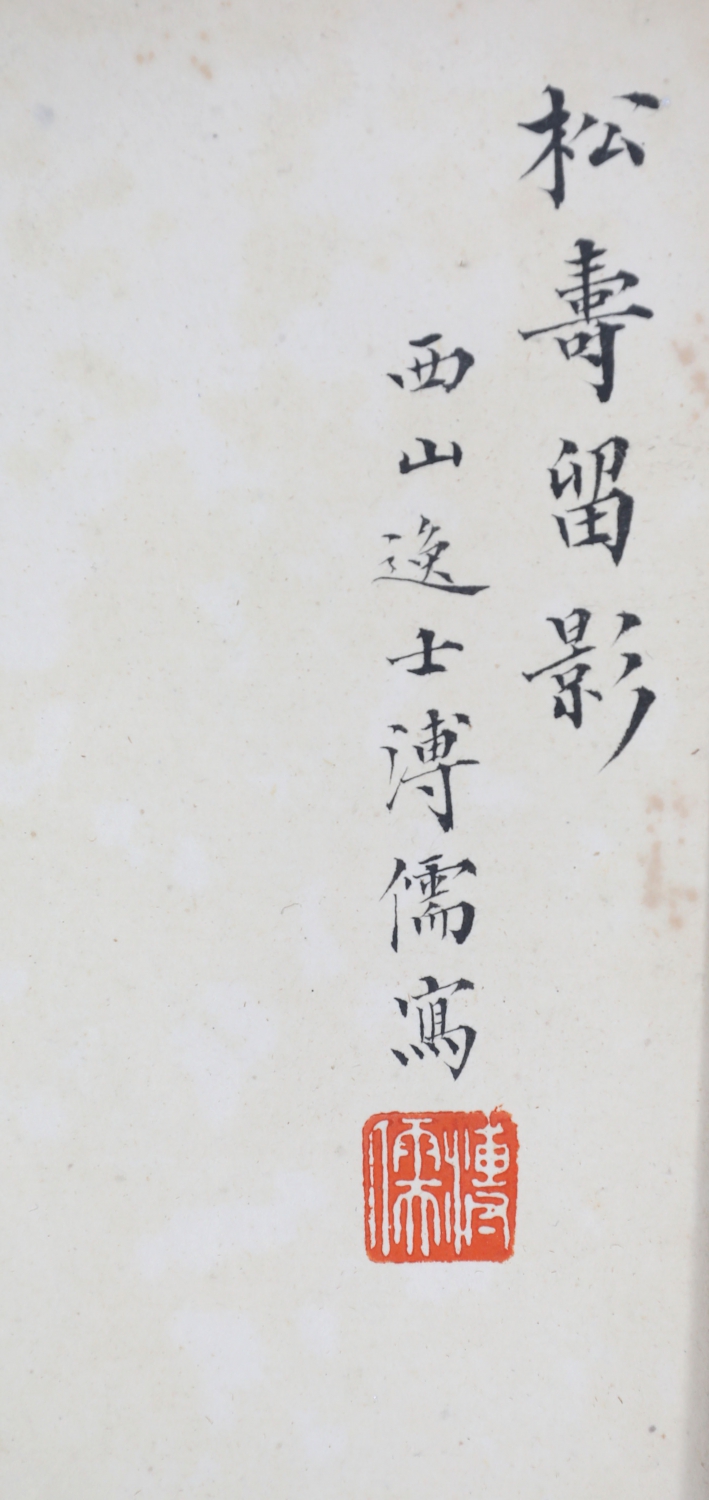 松壽留影
西山逸士溥儒寫
溥儒